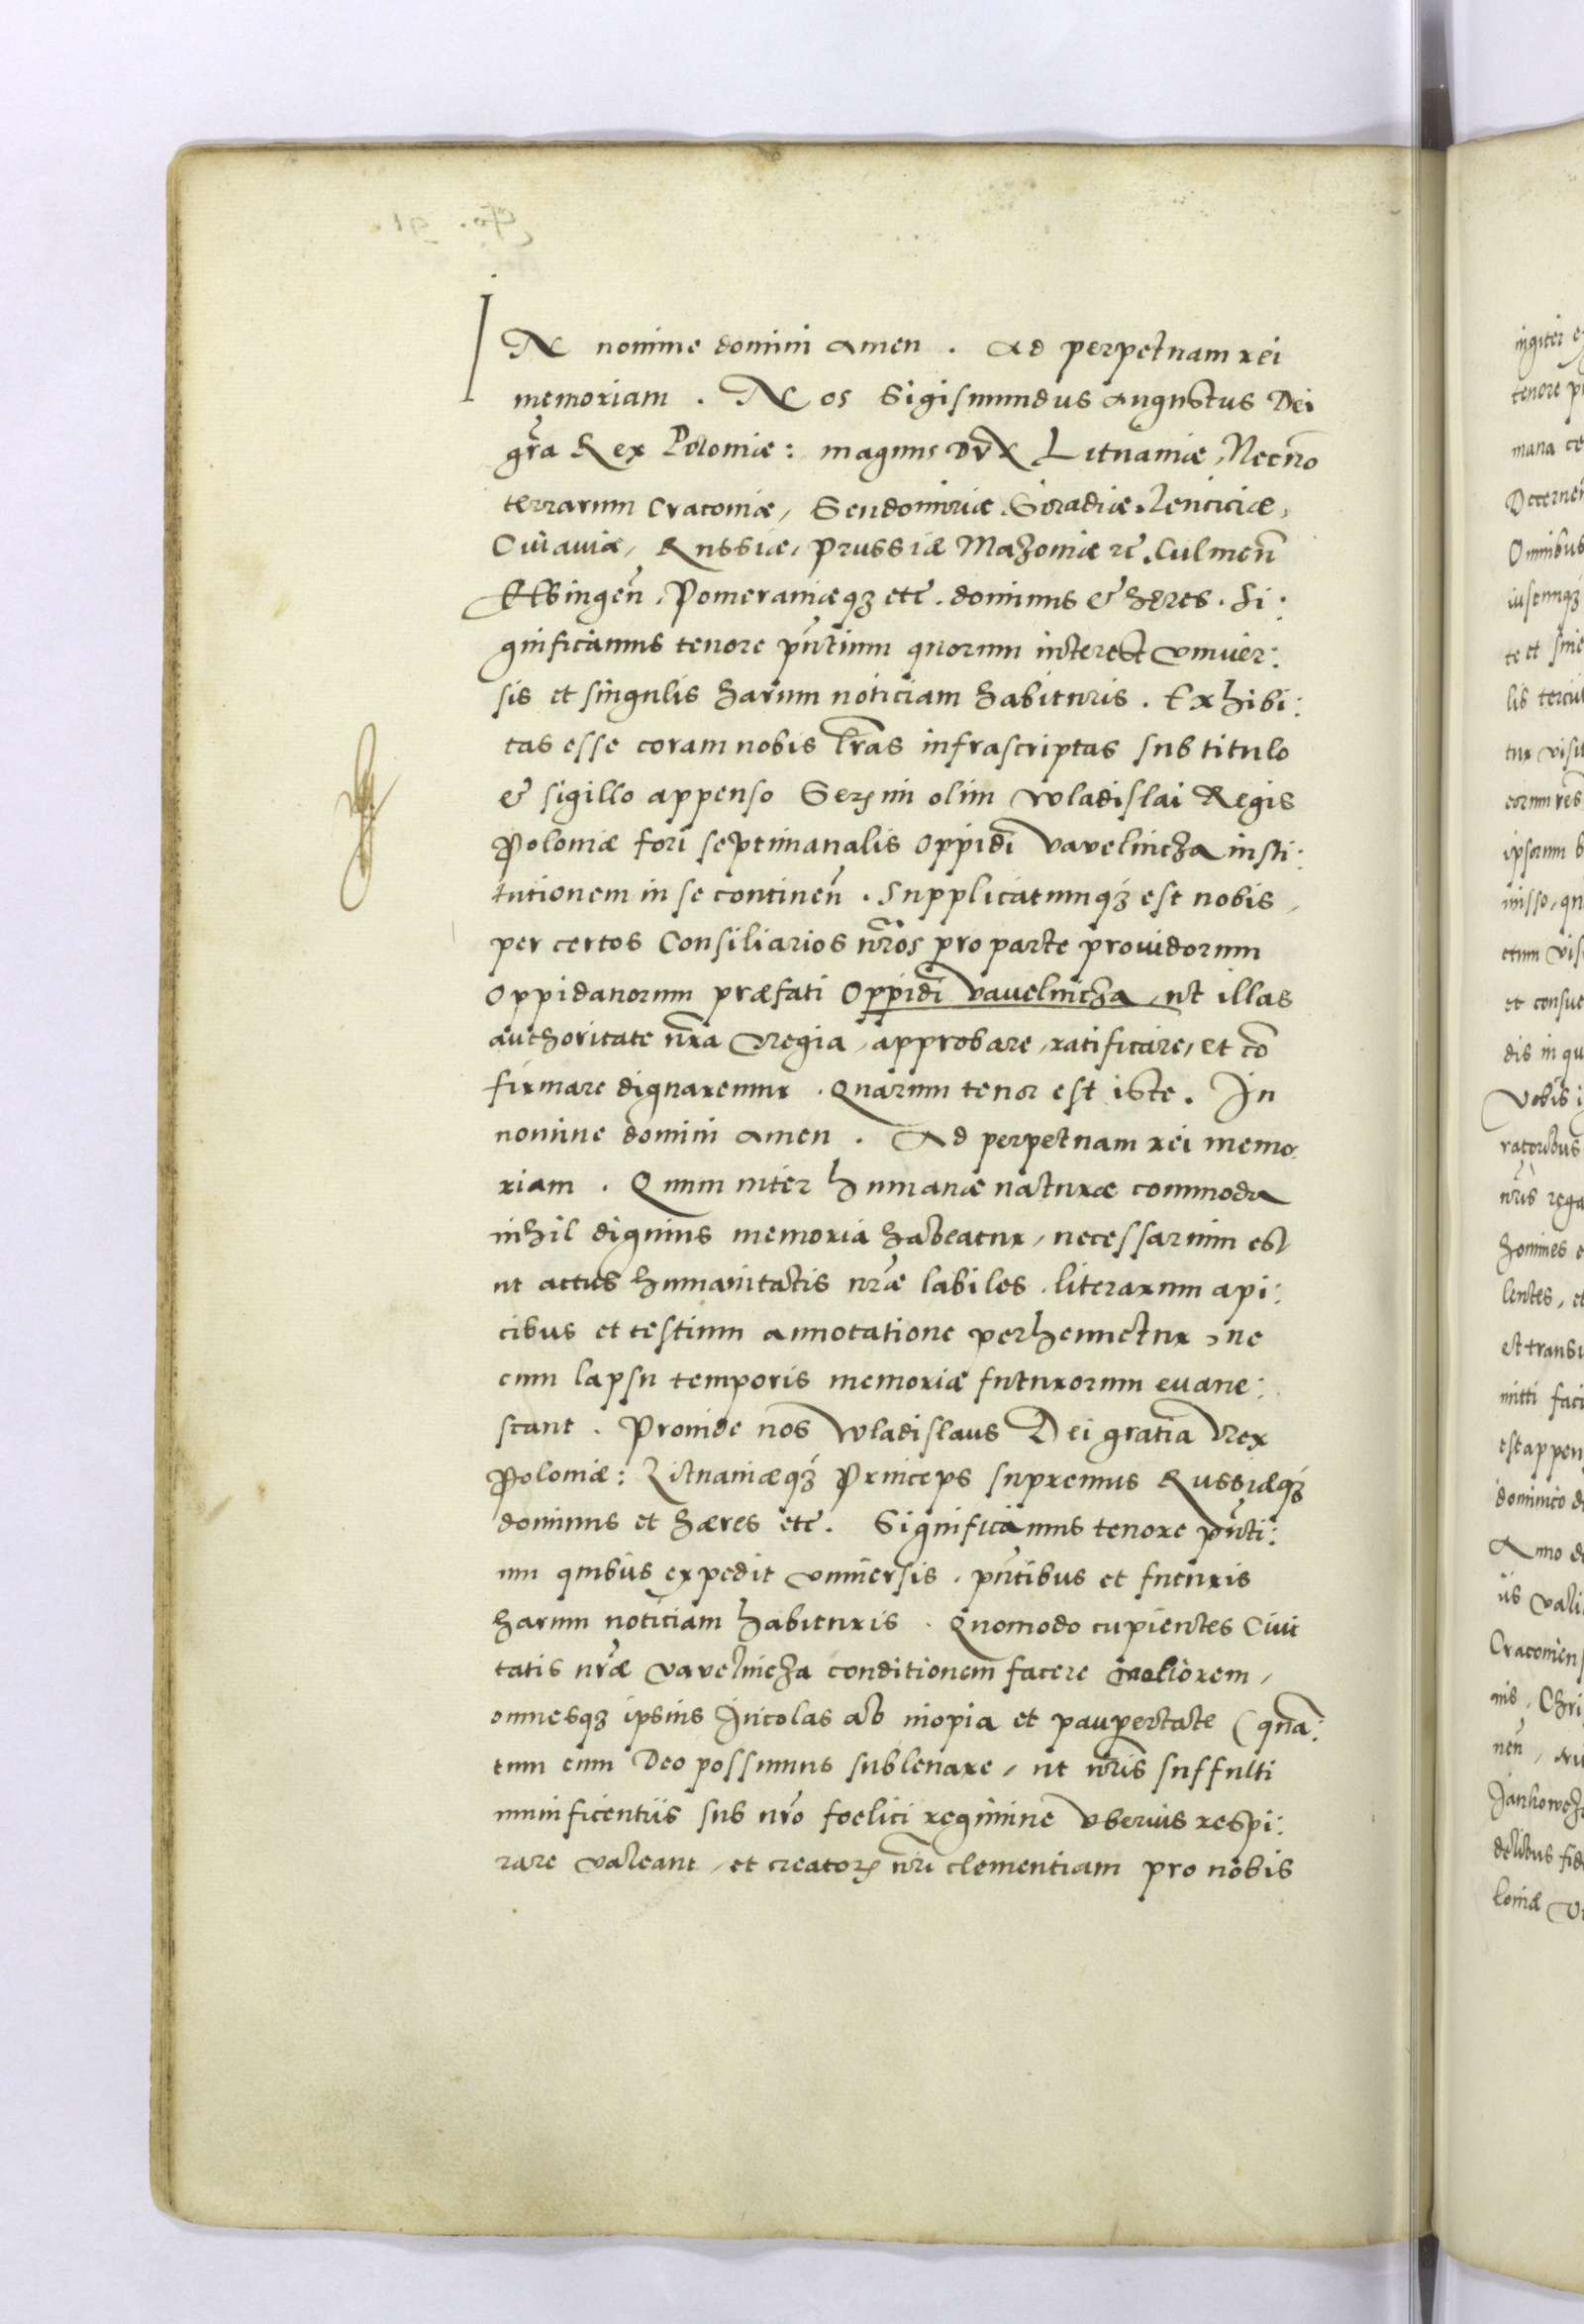 IN nomine domini amen. Ad perpetuam rei
memoriam. Nos Sigismundus Augustus Dei
gr̃a Rex Poloniæ: magnus Dvx Lituaniæ, Necnõ
terrarum Cracoviæ, Sendomiriæ, Siradiæ, Lenciciæ,
Cuiaviæ, Russiæ, Prussiæ Mazoviæ ꝛc̃. Culmeñ
Elbingeñ, Pomeraniæqꝫ etc̃. dominus & heres. Si:
gnificamus tenore pñtium quorum interest vniuer:
sis et singulis harum noticiam habituris. Exhibi:
tas esse coram nobis lr̃as infrascriptas sub titulo
& sigillo appenso Serꝫmi olim Wladislai Regis
Poloniæ fori septimanalis oppidi Vavelnicza insti:
tutionem in se contineñ. Supplicatumqꝫ est nobis,
per certos Consiliarios nr̃os pro parte prouidorum
Oppidanorum præfati Oppidi Vauelnicza, ut illas
authoritate nr̃a regia, approbare, ratificare, et cõ
firmare dignaremur. Quarum tenor est iste. In
nomine domini amen. Ad perpetuam rei memo
riam. Quum inter humanæ naturæ commoda
nihil dignius memoria habeatur, necessarium est
ut actus humanitatis nr̃æ labiles literarum api:
cibus et testium annotatione perhennetur, ne
cum lapsu temporis memoriæ futurorum euane:
scant. Proinde nos Wladislaus Dei gratia Rex
Poloniæ: Lituaniæqꝫ Princeps supremus Russiæqꝫ
dominus et hæres etc̃. Significamus tenore pñti:
um quibus expedit vniuersis, pñtibus et futuris
harum noticiam habituris. Quomodo cupientes Ciui
tatis nr̃æ Vavelnicza conditionem facere meliorem,
omnesqꝫ ipsius Incolas ab inopia et paupertate (quã:
tum cum Deo possumus subleuare, ut nr̃is suffulti
munificentiis sub nr̃o foelici regimine vberius respi:
rare valeant, et creatorꝫ nr̃i clementiam pro nobis